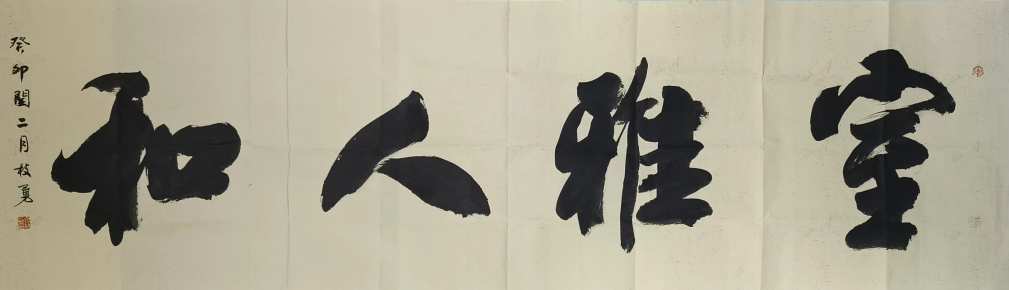 室雅人和
癸卯閏二月枝勇